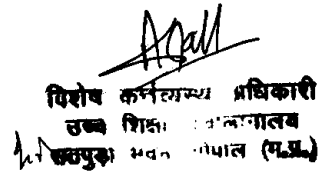 विशेष कर्तव्यस्थ अधिकारी
उच्च शिक्षा
सतपुड़ा भवन भोपाल (म.प्र.)